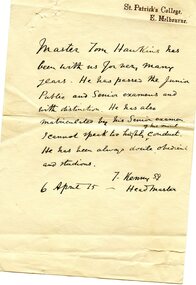 St. Patrick's College,
E. Melbourne.
Master Tom Hawkins has
been with us for very many
years. He has passed the Junior
Public and Senior examens and
with distinction. He has also
matriculated by his Senior examen
I cannot speak too highly conduct.
He has been always docile obedient
and studious.
T. Kenny SJ
6 April 15 — Headmaster